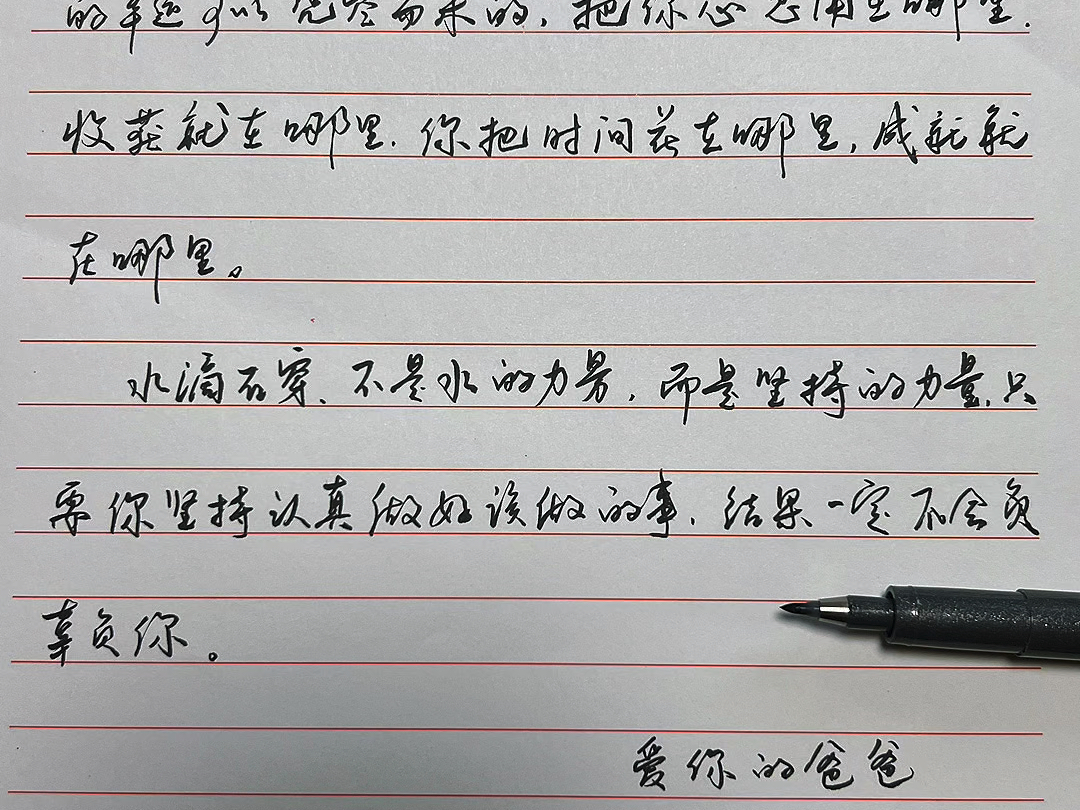 的可以凭空而来的，把你心思用在哪里，
收获就在哪里，你把时间花在哪里，成就就
在哪里。
水滴石穿，不是水的力量，而是坚持的力量，只
要你坚持认真做好该做的事，结果一定不会负
辜负你。
爱你的爸爸